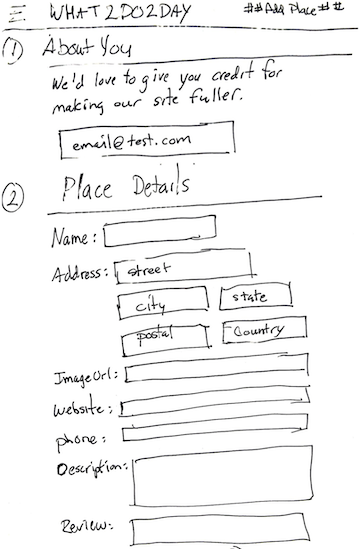 WHAT2DO2DAY ##Add Place##
1 About You
We'd love to give you credit for
making our site fuller.
email@test.com
2 Place Details
Name:
Address: street
city state
postal Country
ImageUrl:
Website:
phone:
Description:
Review: